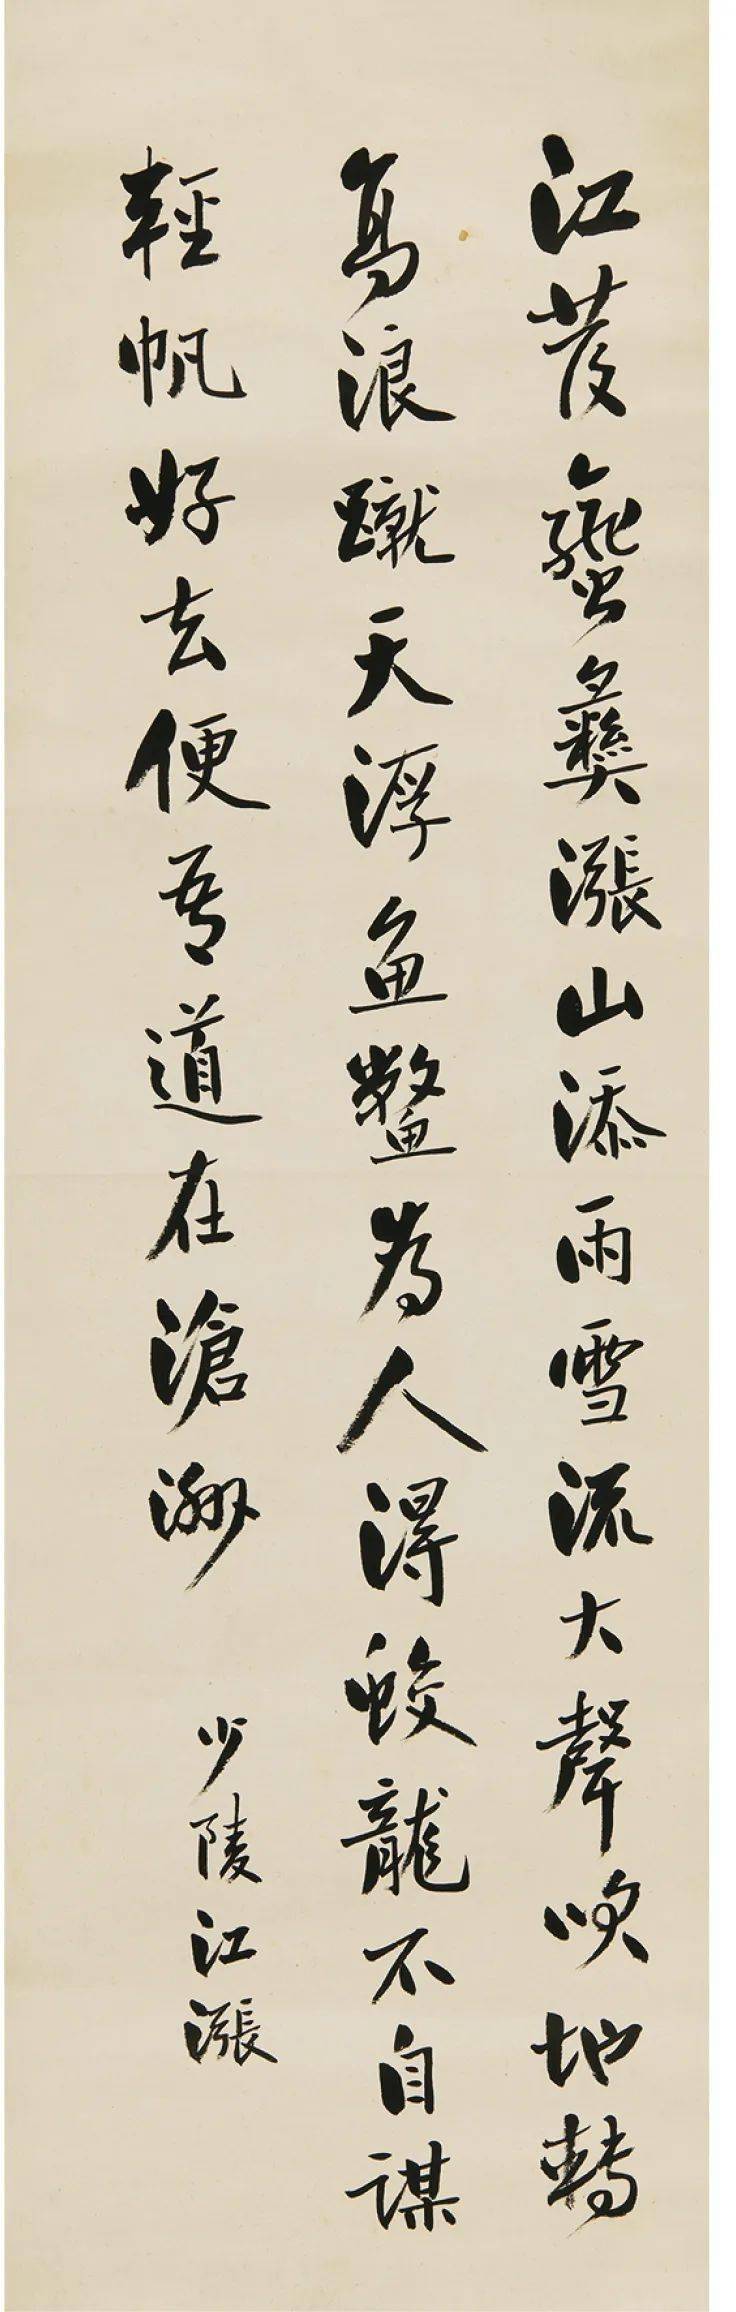 江發蠻彝漲山添雨雪流大聲吹地轉
高浪蹴天浮魚鱉為人得蛟龍不自謀
輕帆好去便吾道在滄洲
少陵江漲